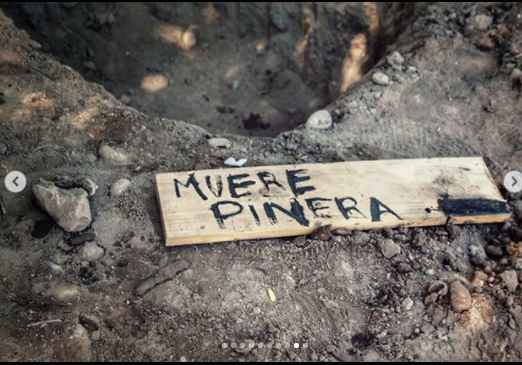 MUERE
PIÑERA